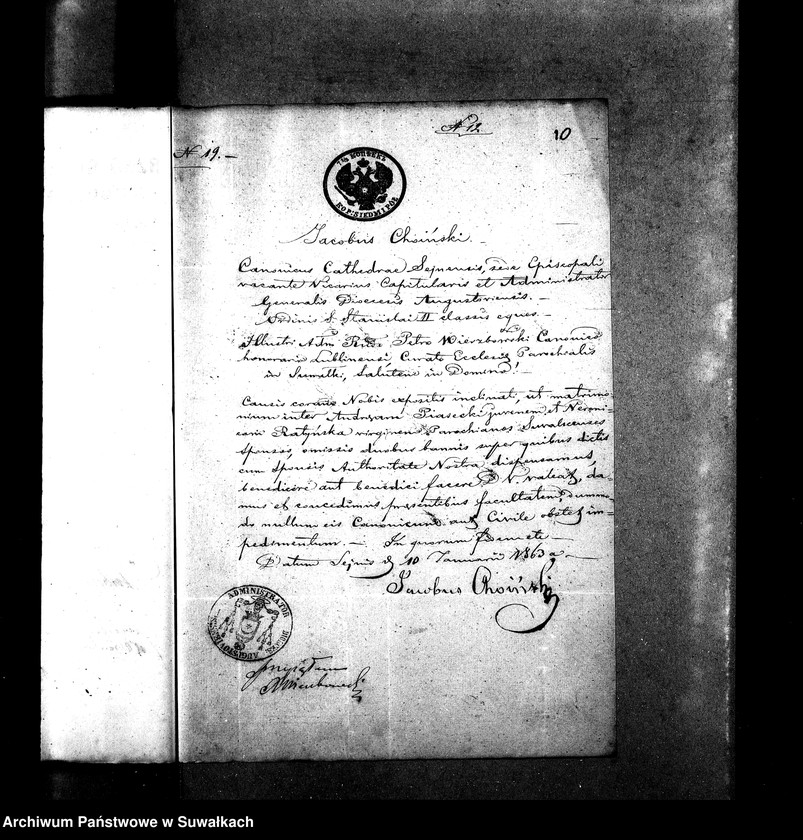 N 12.
10
N 19. —
7½ КОПѢЕКЪ
KOP: SIEDM I PÓŁ
Jacobus Choiński. —
Canonicus Cathedrae Sejnensis, sede Episcopali
vacante Vicarius Capitularis et Administrator
Generalis Dioecesis Augustoviensis. —
Ordinis S. Stanislai II classis eques —
Illustri Adm Rndo Petro Wierzbowski Canonico
honorario Lublinensi Curato Ecclesiae Parochialis
in Suwałki, Salutem in Domino! —
Causis coram Nobis expositis inclinati, ut matrimo=
nium inter Andream Piasecki juvenem et Veroni=
cam Ratyńska virginem Parochianos Suwalcenses
sponsos, omissis duobus bannis super quibus dictis
cum Sponsis Authoritate Nostra dispensamus,
benedicere aut benedici facere D. V. valeat, da=
mus et concedimus praesentibus facultatem, dummo
do nullum eis Canonicum aut Civile obstet im=
pedimentum. — In quorum fidem etc —
Datum Sejnis d 10 Januarii 1863 a. —
Jacobus Choiński
ADMINISTRATOR
DIOECES. AUGUSTOVIENSIS